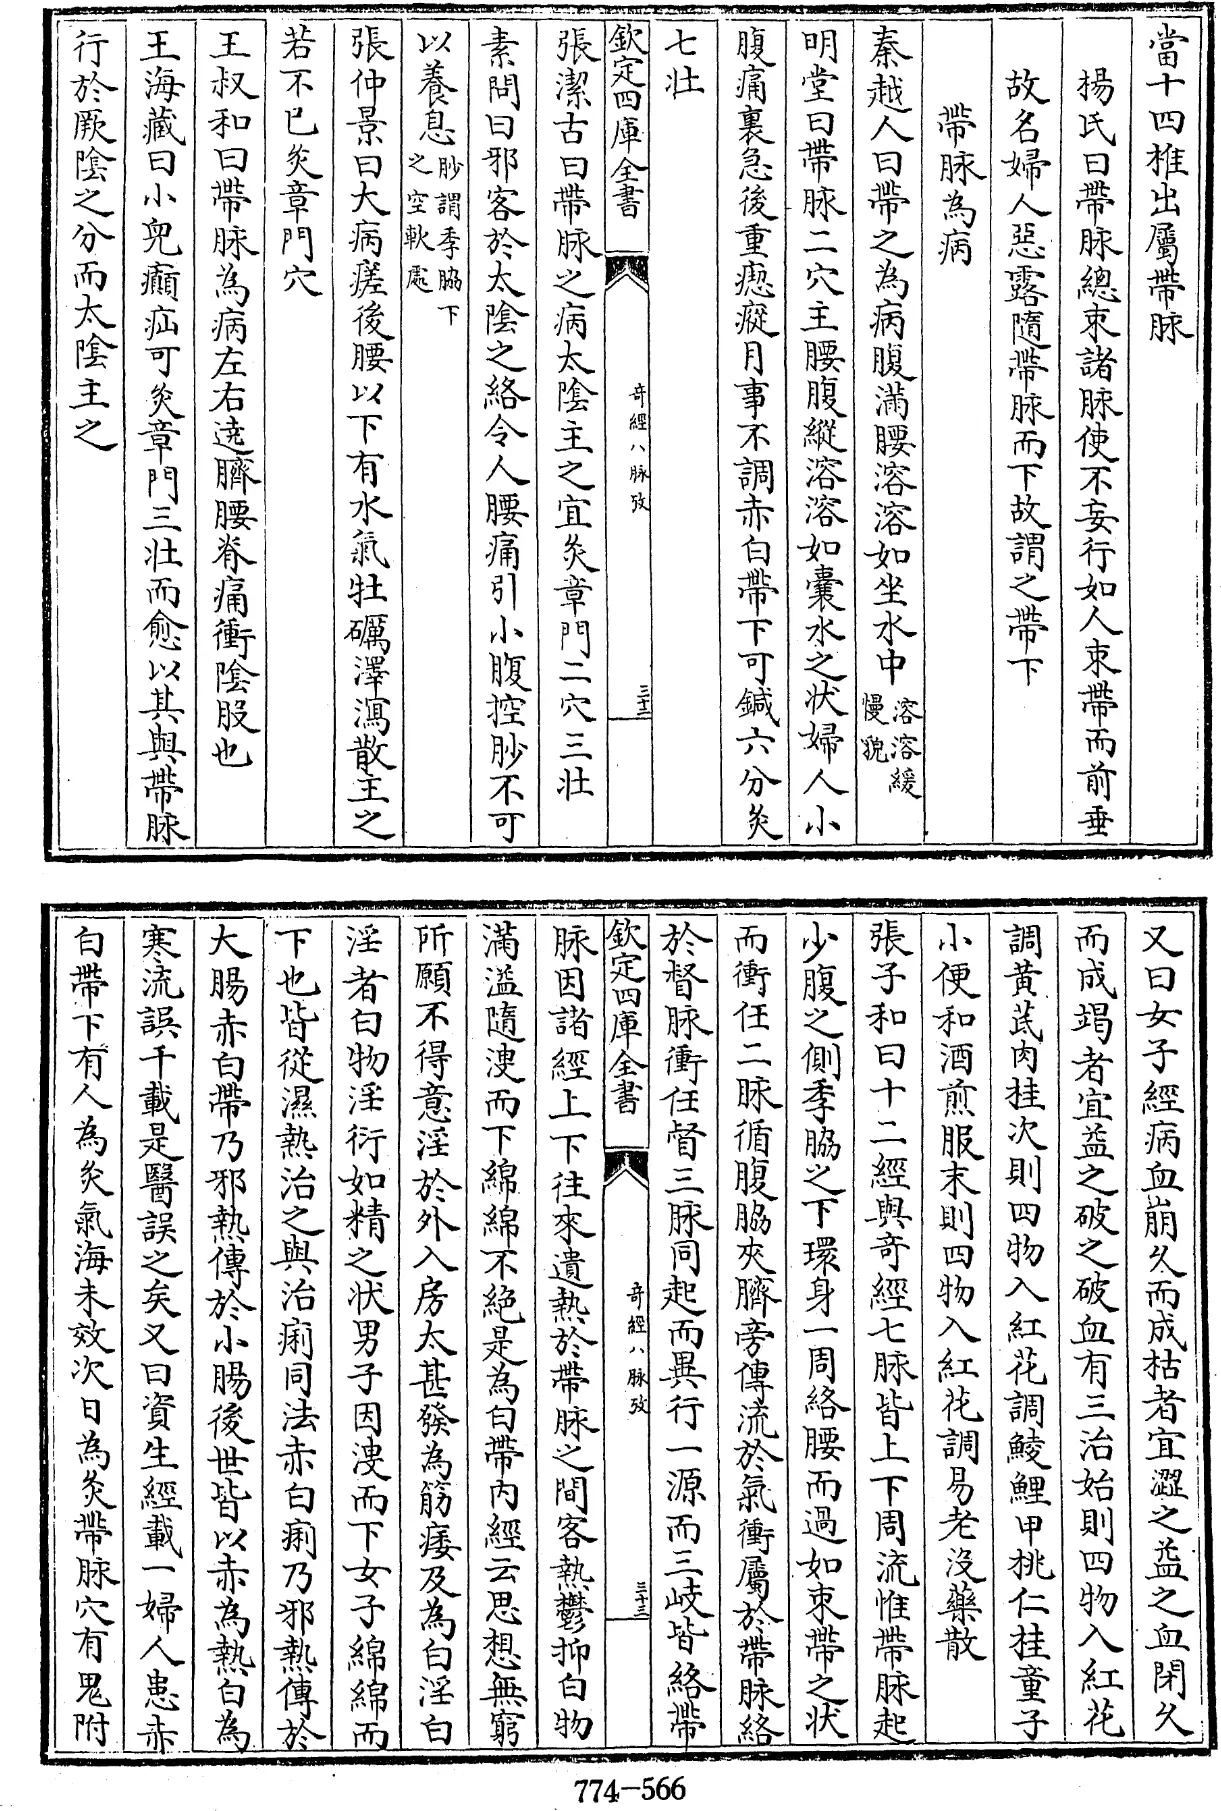 當十四椎出屬帶脉
楊氏曰帶脉總束諸脉使不妄行如人束帶而前垂
故名婦人惡露隨帶脉而下故謂之帶下
帶脉為病
秦越人曰帶之為病腹滿腰溶溶如坐水中溶溶緩慢貌
明堂曰帶脉二穴主腰腹縱溶溶如囊水之状婦人小
腹痛裏急後重瘛瘲月事不調赤白帶下可鍼六分灸
七壯
欽定四庫全書
奇經八脉攷
三十二
張潔古曰帶脉之病太陰主之宜灸章門二穴三壯
素問曰邪客於太陰之絡令人腰痛引小腹控䏚不可
以養息䏚謂季脇下之空軟處
張仲景曰大病瘥後腰以下有水氣牡礪澤瀉散主之
若不已灸章門穴
王叔和曰帶脉為病左右遶臍腰脊痛衝陰股也
王海藏曰小兒癩疝可灸章門三壯而愈以其與帶脉
行於厥陰之分而太陰主之
又曰女子經病血崩久而成枯者宜澀之益之血閉久
而成竭者宜益之破之破血有三治始則四物入紅花
調黃芪肉桂次則四物入紅花調鯪鯉甲桃仁桂童子
小便和酒煎服末則四物入紅花調易老沒藥散
張子和曰十二經與奇經七脉皆上下周流惟帶脉起
少腹之側季脇之下環身一周絡腰而過如束帶之状
而衝任二脉循腹脇夾臍旁傳流於氣衝屬於帶脉絡
於督脉衝任督三脉同起而異行一源而三岐皆絡帶
欽定四庫全書
奇經八脉攷
三十三
脉因諸經上下往來遺熱於帶脉之間客熱鬱抑白物
滿溢隨溲而下綿綿不絕是為白帶内經云思想無窮
所願不得意淫於外入房太甚發為筋痿及為白淫白
淫者白物淫衍如精之状男子因溲而下女子綿綿而
下也皆從濕熱治之與治痢同法赤白痢乃邪熱傳於
大腸赤白帶乃邪熱傳於小腸後世皆以赤為熱白為
寒流誤千載是醫誤之矣又曰資生經載一婦人患赤
白帶下有人為灸氣海未效次日為灸帶脉穴有鬼附
774-566